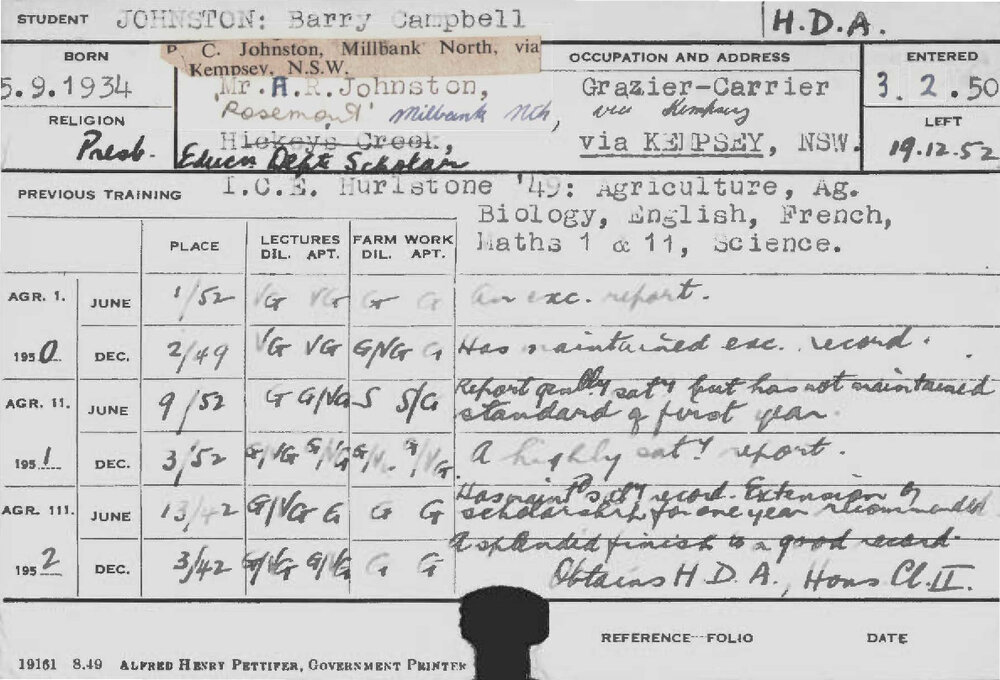 STUDENT JOHNSTON: Barry Campbell H.D.A.
BORN
5.9.1934
RELIGION
Presb.
P. C. Johnston, Millbank North, via
Kempsey, N.S.W.
Mr. A.R. Johnston,
'Rosemount' Millbank Nth,
Hickeys Creek,
Educn Dept Scholar
OCCUPATION AND ADDRESS
Grazier-Carrier
via Kempsey
via KEMPSEY, NSW.
ENTERED
3.2.50
LEFT
19.12.52
PREVIOUS TRAINING I.C.E. Hurlstone '49: Agriculture, Ag.
Biology, English, French,
Maths 1 & 11, Science.
PLACE LECTURES FARM WORK
DIL. APT. DIL. APT.
AGR. 1. JUNE 1/52 VG VG G G An exc. report.
1950 DEC. 2/49 VG VG G/VG G Has maintained exc. record.
AGR. 11. JUNE 9/52 G G/VG S S/G Report genlly saty but has not maintained
standard of first year.
1951 DEC. 3/52 G/VG G/VG G/VG A highly saty report.
AGR. 111. JUNE 13/42 G/VG G G G Has maintd saty record. Extension of
scholarship for one year recommended
1952 DEC. 3/42 G/VG G/VG G G A splendid finish to a good record.
Obtains H.D.A., Hons Cl. II.
REFERENCE-FOLIO DATE
19161 8.49 ALFRED HENRY PETTIFER, GOVERNMENT PRINTER